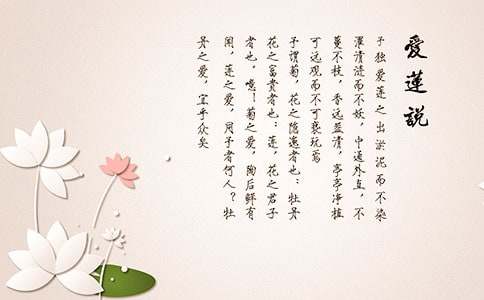 爱蓮說
予独爱莲之出淤泥而不染
濯清涟而不妖，中通外直，不
蔓不枝，香远益清，亭亭净植
可远观而不可亵玩焉
予谓菊，花之隐逸者也；牡丹
花之富贵者也；莲，花之君子
者也。噫！菊之爱，陶后鲜有
闻，莲之爱，同予者何人？牡
丹之爱，宜乎众矣